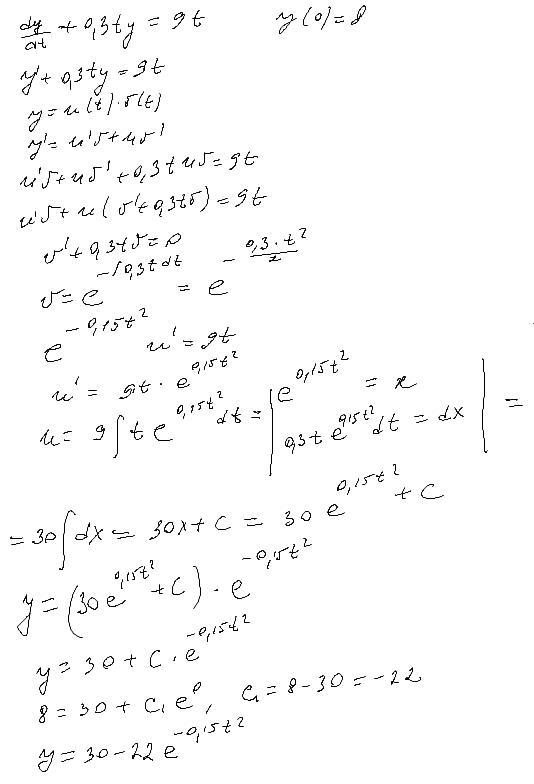 dy/dt + 0,3ty = 9t    y(0) = 8
y' + 0,3ty = 9t
y = u(t)·v(t)
y' = u'v + uv'
u'v + uv' + 0,3tuv = 9t
u'v + u(v' + 0,3tv) = 9t
v' + 0,3tv = 0
v = e^(-∫0,3t dt) = e^(-0,3·t²/2)
e^(-0,15t²) u' = 9t
u' = 9t · e^(0,15t²)
u = 9∫t e^(0,15t²) dt = | e^(0,15t²) = x   0,3t e^(0,15t²) dt = dx | =
= 30∫dx = 30x + C = 30 e^(0,15t²) + C
y = (30e^(0,15t²) + C) · e^(-0,15t²)
y = 30 + C · e^(-0,15t²)
8 = 30 + C₁ e⁰, C₁ = 8 - 30 = -22
y = 30 - 22 e^(-0,15t²)